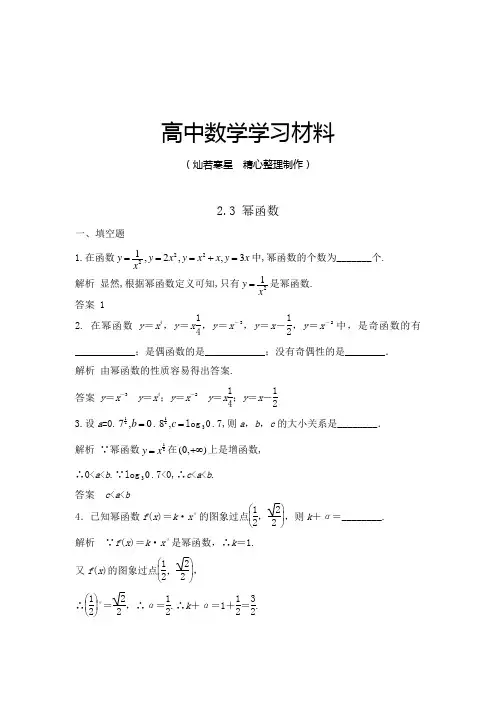 高中数学学习材料
（灿若寒星 精心整理制作）
2.3 幂函数
一、填空题
1.在函数y=1/x²,y=2x²,y=x²+x,y=3x中,幂函数的个数为_______个.
解析 显然,根据幂函数定义可知,只有y=1/x²是幂函数.
答案 1
2. 在幂函数 y＝x⁴，y＝x1/4，y＝x⁻³，y＝x－1/2，y＝x⁻²中，是奇函数的有
____________；是偶函数的是____________；没有奇偶性的是________．
解析 由幂函数的性质容易得出答案.
答案 y＝x⁻³ y＝x⁴；y＝x⁻² y＝x1/4；y＝x－1/2
log₃0.7,则a，b，c的大小关系是________．
上是增函数,
∴0<a<b.∵log₃0.7<0,∴c<a<b.
答案 c<a<b
4．已知幂函数f(x)＝k·x^α的图象过点(1/2，√2/2)，则k＋α＝________.
解析 ∵f(x)＝k·x^α是幂函数，∴k＝1.
又f(x)的图象过点(1/2，√2/2)，
∴(1/2)^α＝√2/2，∴α＝1/2.∴k＋α＝1＋1/2＝3/2.